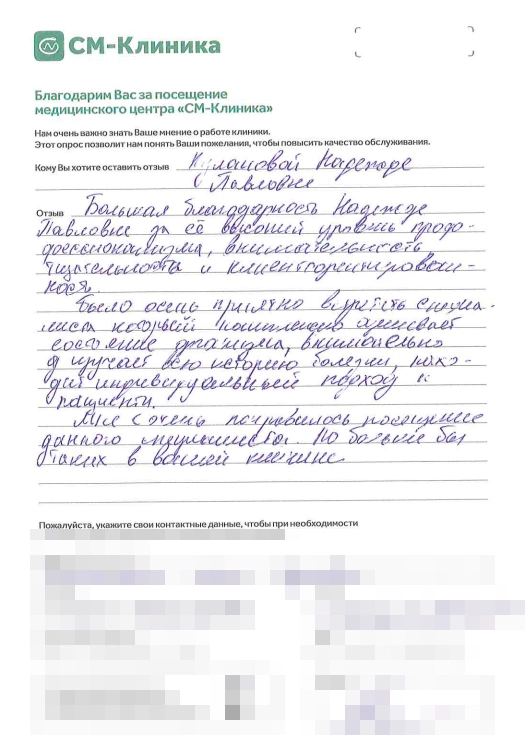 СМ-Клиника
Благодарим Вас за посещение
медицинского центра «СМ-Клиника»
Нам очень важно знать Ваше мнение о работе клиники.
Этот опрос позволит нам понять Ваши пожелания, чтобы повысить качество обслуживания.
Кому Вы хотите оставить отзыв Надежде
Павловне
Отзыв Большая благодарность Надежде
Павловне за её высокий уровень профе-
ссионализма, внимательность
тщательность и
Было очень приятно специа-
листа который оценивает
состояние организма, внимательно
изучает всю историю болезни, нахо-
дит индивидуальный подход к
Мне очень понравилось посещение
данного специалиста. По больше бы
таких в вашей клинике.
Пожалуйста, укажите свои контактные данные, чтобы при необходимости